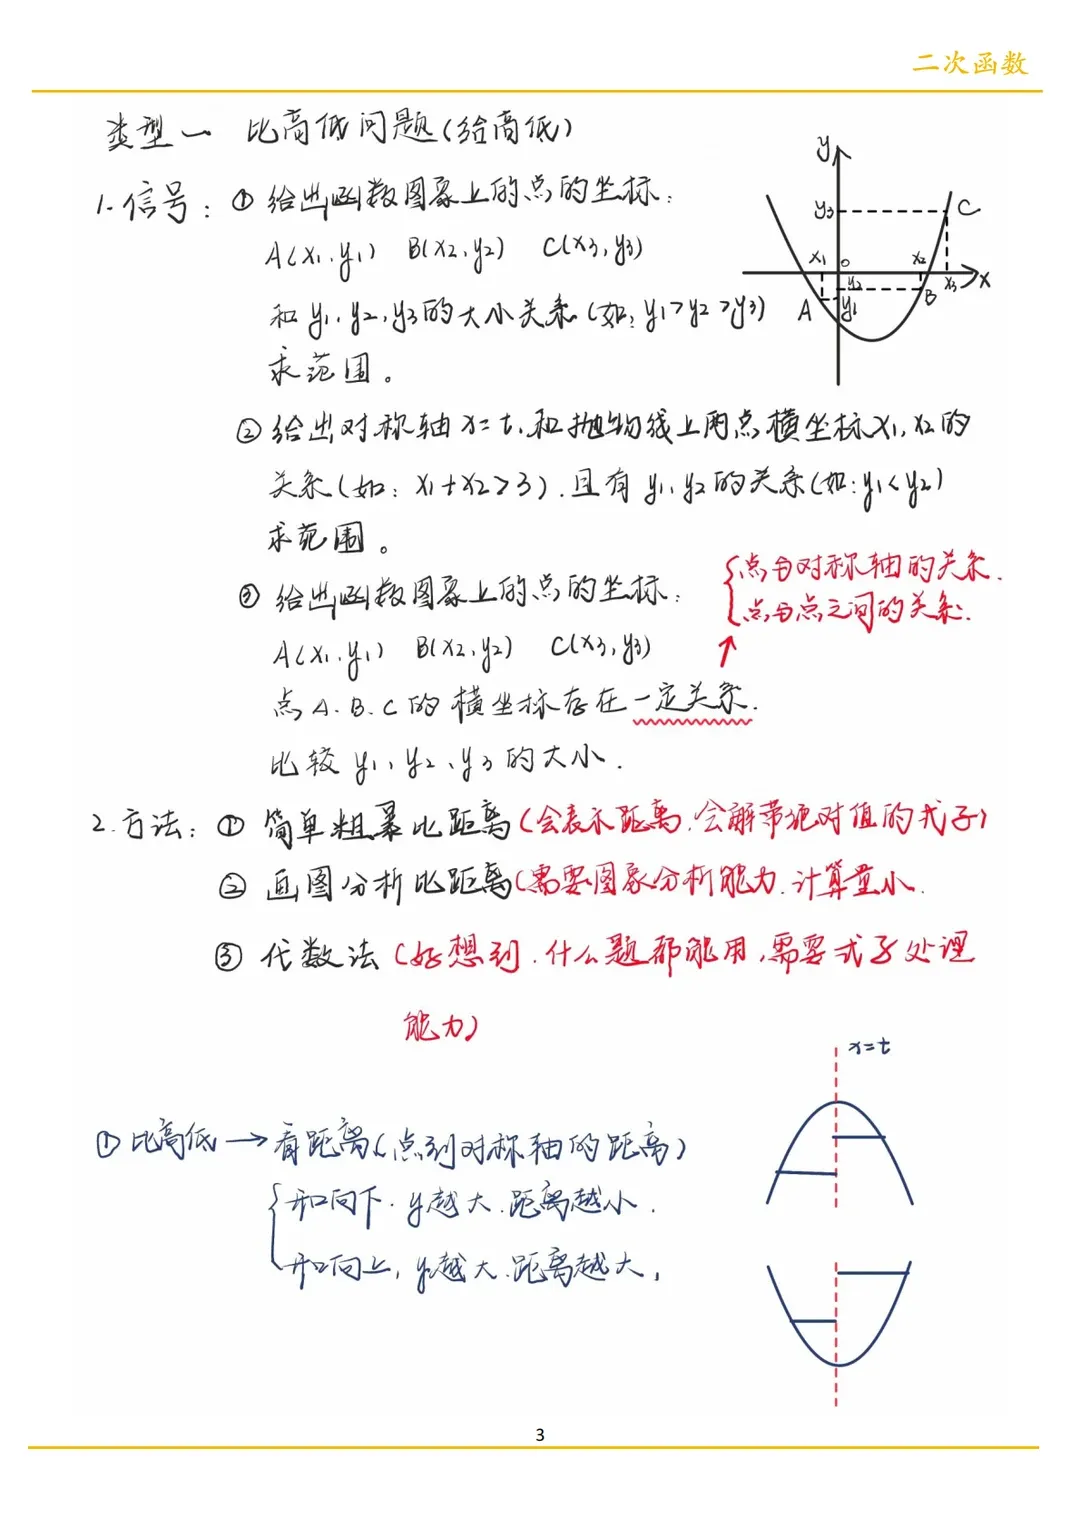 二次函数
类型一 比高低问题(给高低)
1.信号: ① 给出函数图象上的点的坐标:
A(x₁,y₁) B(x₂,y₂) C(x₃,y₃)
和 y₁,y₂,y₃的大小关系(如:y₁>y₂>y₃)
求范围。
y
y₃
C
x₁
o
x₂
x₃
x
y₂
A
y₁
B
② 给出对称轴x=t,和抛物线上两点横坐标x₁,x₂的
关系(如: x₁+x₂>3).且有 y₁,y₂的关系(如:y₁<y₂)
求范围。
③ 给出函数图象上的点的坐标:
A(x₁,y₁) B(x₂,y₂) C(x₃,y₃)
点A.B.C的横坐标存在一定关系.
比较 y₁、y₂、y₃的大小.
点与对称轴的关系.
点与点之间的关系.
2.方法: ① 简单粗暴比距离(会表示距离.会解带绝对值的式子)
② 画图分析比距离(需要图象分析能力.计算量小.
③ 代数法(好想到.什么题都能用,需要式子处理
能力)
① 比高低→看距离(点到对称轴的距离)
开口向下.y越大.距离越小.
开口向上,y越大.距离越大,
x=t
3